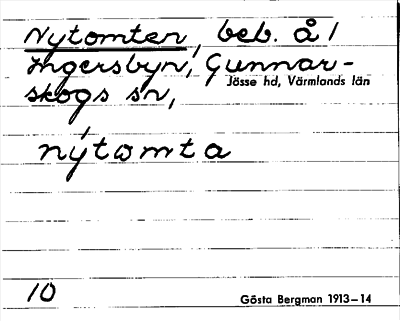 Nytomten, beb. å /
Ingersbyn, Gunnar-
skogs sn,
Jösse hd, Värmlands län
nýtωmta
10
Gösta Bergman 1913–14